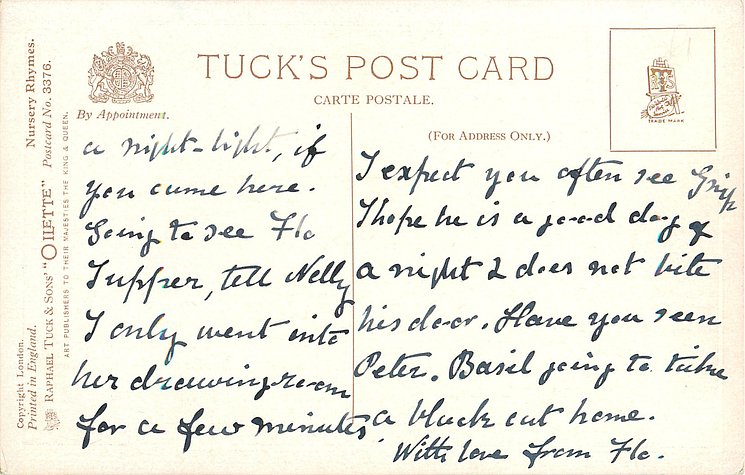 TUCK'S POST CARD
CARTE POSTALE.
By Appointment.
(FOR ADDRESS ONLY.)
T
TRADE MARK
Nursery Rhymes.
RAPHAEL TUCK & SONS' "OILETTE" Postcard No. 3376.
ART PUBLISHERS TO THEIR MAJESTIES THE KING & QUEEN.
Copyright London.
Printed in England.
a night-light, if
you came here.
Going to see Flo
Tupper, tell Nelly
I only went into
her drawing-room
for a few minutes
I expect you often see Grip
I hope he is a good dog &
a night & does not bite
his door. Have you seen
Peter. Basil going to take
a black cat home.
With love from Flo.